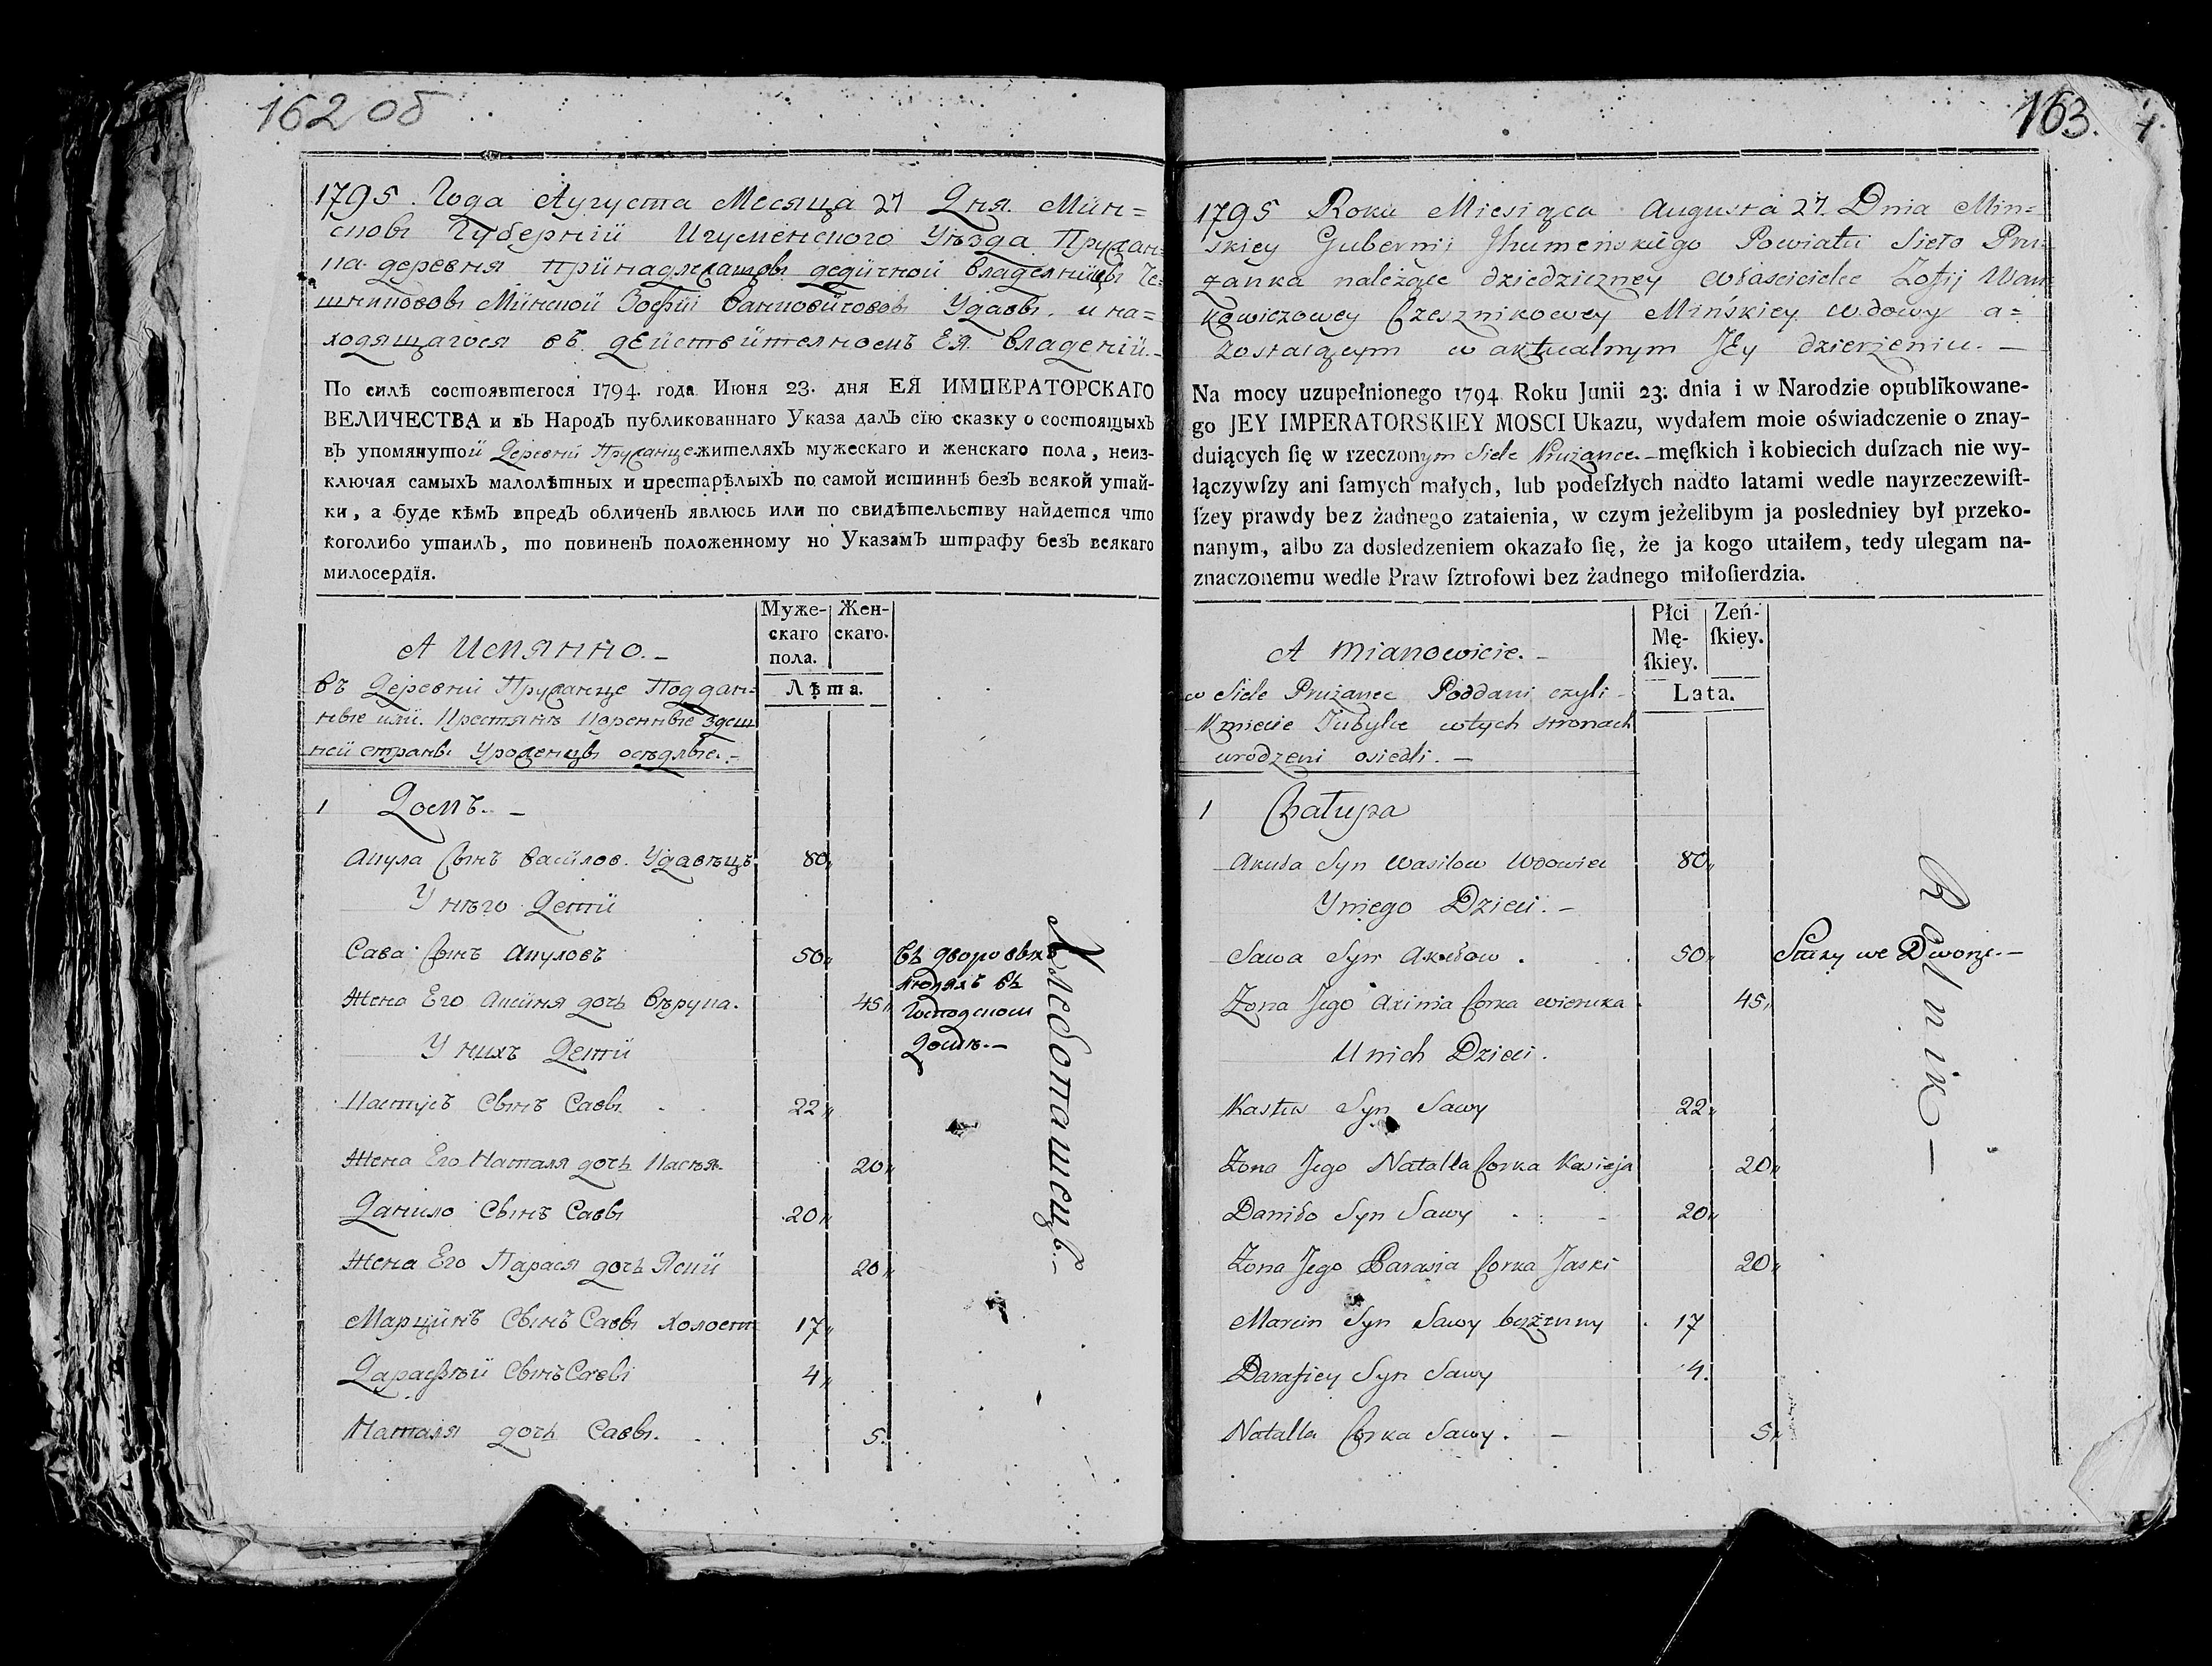 162 об
1795. Года Аугуста Месяца 27 Дня. Мин=
ской Губерніи Игуменского Уѣзда Пружан=
ка деревня принадлежащой дедичной владелницы Че=
шниковой Минской Зофіи Ванковичовой Удовы. и на=
ходящагося въ дѣйствителномъ Ея владеніи.-
По силѣ состоявшегося 1794. года Июня 23. дня ЕЯ ИМПЕРАТОРСКАГО
ВЕЛИЧЕСТВА и въ Народъ публикованнаго Указа далъ сїю сказку о состоящыхъ
въ упомянутой Деревни Пружанце жителяхъ мужескаго и женскаго пола, неиз-
ключая самыхъ малолѣтных и престарѣлыхъ по самой истиннѣ безъ всякой утай-
ки, а буде кѣмъ впредъ обличенъ явлюсь или по свидѣтельству найдется что
коголибо утаилъ, то повиненъ положенному по Указамъ штрафу безъ всякаго
милосердїя.
Муже-
скаго
пола.
Жен-
скаго.
Лѣта.
А Имянно.-
въ Деревни Пружанце Поддан-
ные или Крестяне Коренные здеш
ней страны Уроженцы осѣдлые.-
1 Домъ.-
Акула Сынъ Василов. Удавѣцъ 80,,
У него Дети
Сава Сынъ Акуловъ 50,,
въ дворовыхъ
людяхъ въ
Господском
Доме.-
Жена Его Аксиня дочь Вѣрука. 45,,
У нихъ Дети
Кастусъ Сынъ Савы 22,,
Жена Его Наталя дочь Касѣя 20,,
Данило Сынъ Савы 20,,
Жена Его Парася дочь Яски 20,,
Марцинъ Сынъ Савы холост 17,,
Дарафѣй Сынъ Савы 4,,
Наталя дочь Савы. 5.
Хлебопашецъ.-
163.
1795 Roku Miesiąca Augusta 27. Dnia Min=
skiey Gubernij Jhumeńskiego Powiatu Sieło Pru=
żanka należące dziedziczney właścicielce Zofij Wań
kowiczowey Czesznikowey Mińskiey wdowy a=
zostaiącym w aktualnym JEy dzierżeniu.-
Na mocy uzupełnionego 1794 Roku Junii 23: dnia i w Narodzie opublikowane-
go JEY IMPERATORSKIEY MOSCI Ukazu, wydałem moie oświadczenie o znay-
duiących ſię w rzeczonym Siele Pruzance.- męſkich i kobiecich duſzach nie wy-
łączywſzy ani ſamych małych, lub podeſzłych nadto latami wedle nayrzeczewiſt-
ſzey prawdy bez żadnego zataienia, w czym jeżelibym ja posledniey był przeko-
nanym, albo za dosledzeniem okazało ſię, że ja kogo utaiłem, tedy ulegam na-
znaczonemu wedle Praw ſztrofowi bez żadnego miłoſierdzia.
Płci
Mę-
ſkiey.
Zeń-
ſkiey.
Lata.
A mianowicie.-
w Siele Prużance Poddani czyli
Kmiecie Tubylce wtych stronach
urodzeni osiedli.-
1 Chałupa
Akuła Syn Wasilow Wdowiec 80,,
Y niego Dzieci.-
Sawa Syn Akułow. 50,, Służy we Dworze.-
Żona Jego Axinia Corka Wieruka 45,,
U nich Dzieci.
Kastuś Syn Sawy 22,,
Żona Jego Natalla Corka Kasieja 20,,
Daniło Syn Sawy 20,,
Żona Jego Parasia Corka Jaski 20,,
Marcin Syn Sawy bezżenny 17
Darafiey Syn Sawy 4.
Natalla Corka Sawy.- 5,,
Rolnik-